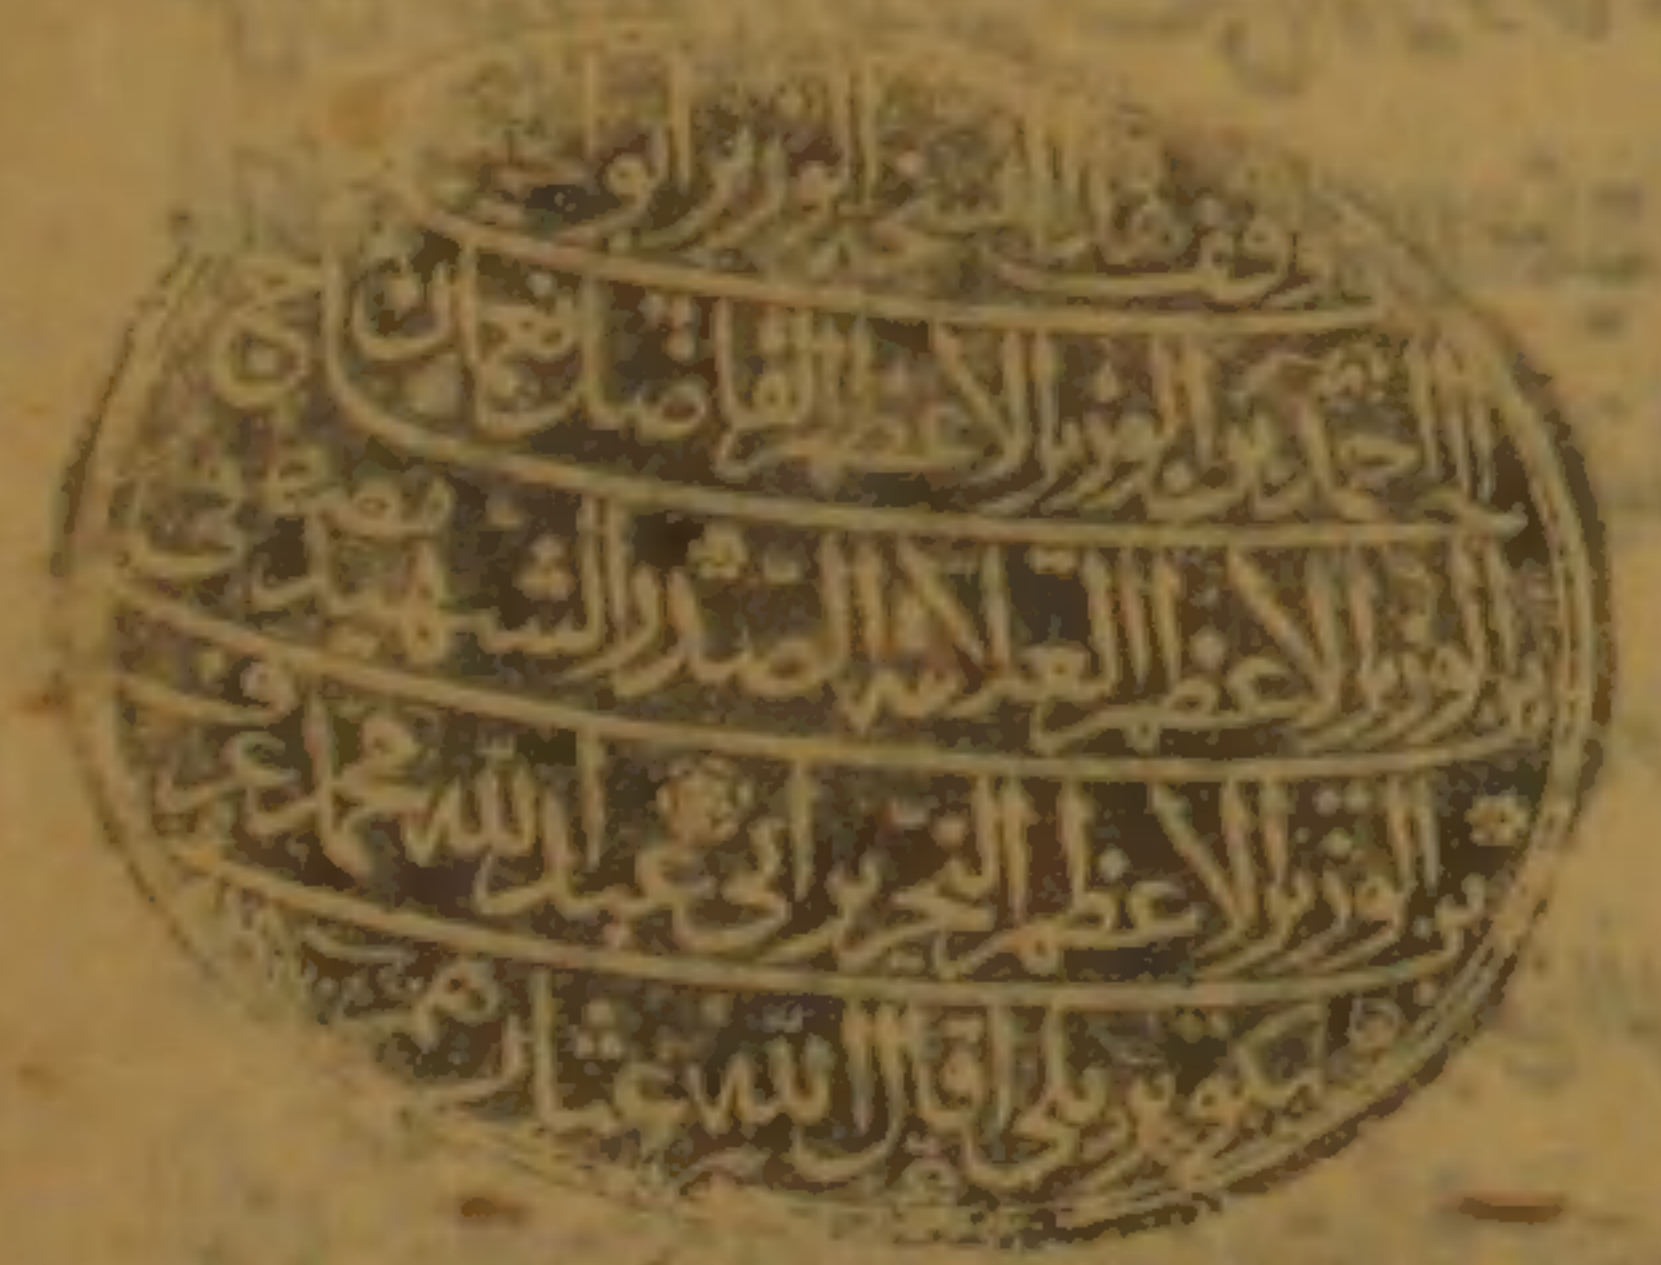 وقف هذا الشيخ الوزير ابو
الحاج احمد بن الوزير الاعظم الفاضل نعمان
بن الوزير الاعظم العلامة الصدر الشهيد مصطفى
بن الوزير الاعظم النحرير ابي عبد الله محمد عرف
بكوبريلي اقال الله عثارهم